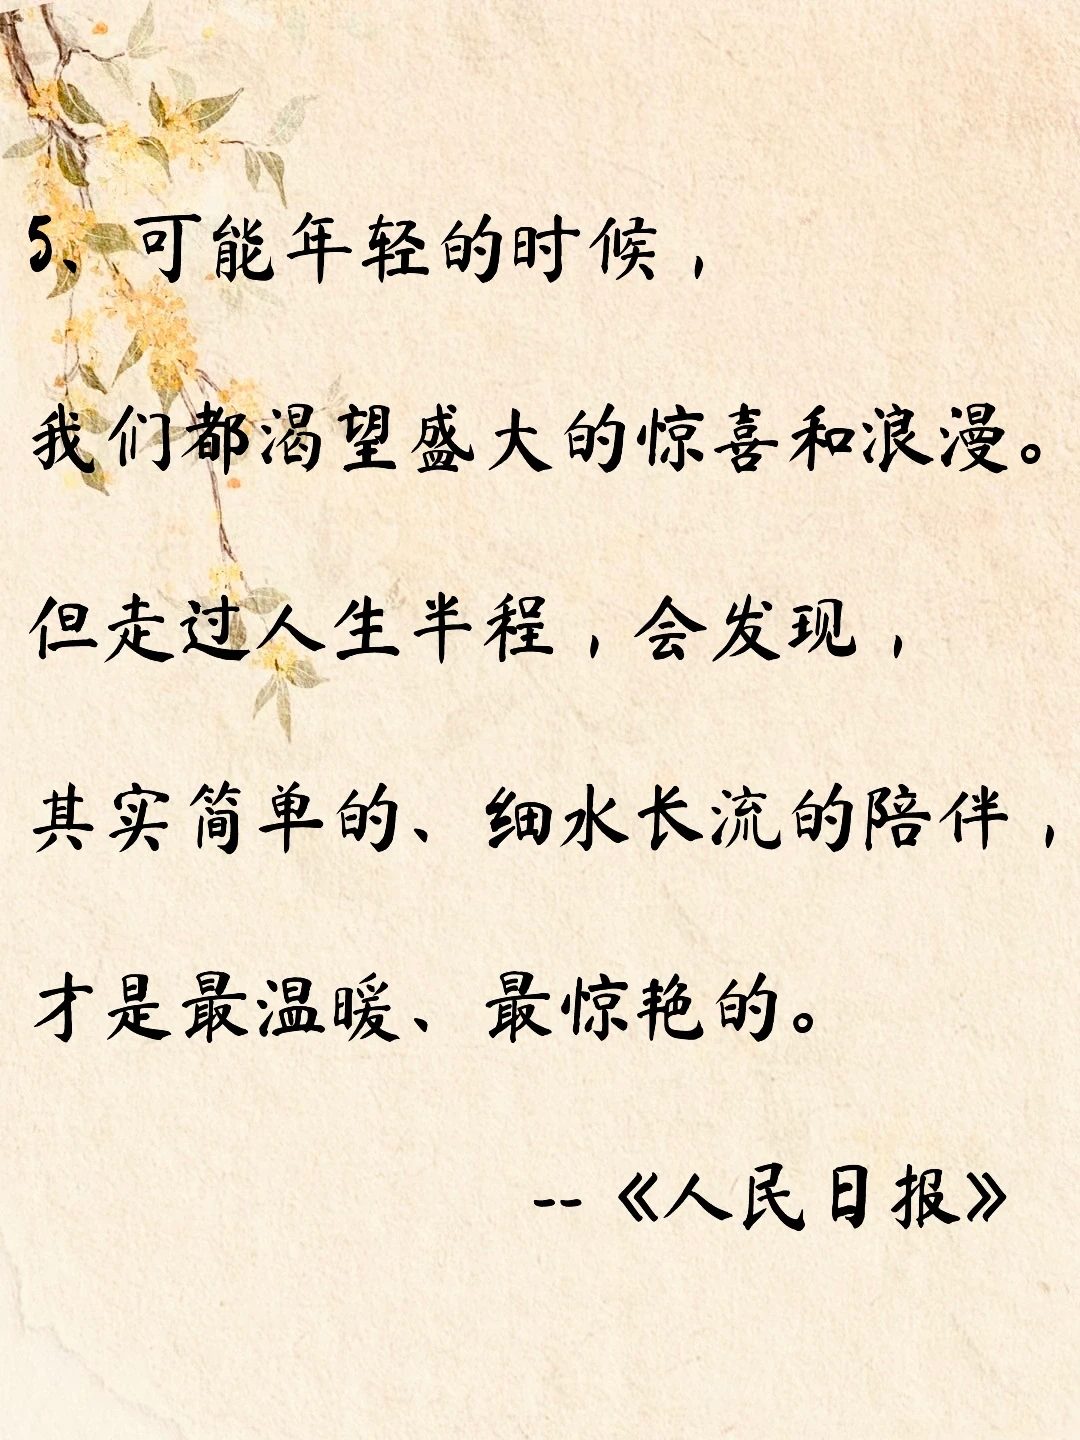 5、可能年轻的时候，
我们都渴望盛大的惊喜和浪漫。
但走过人生半程，会发现，
其实简单的、细水长流的陪伴，
才是最温暖、最惊艳的。
--《人民日报》